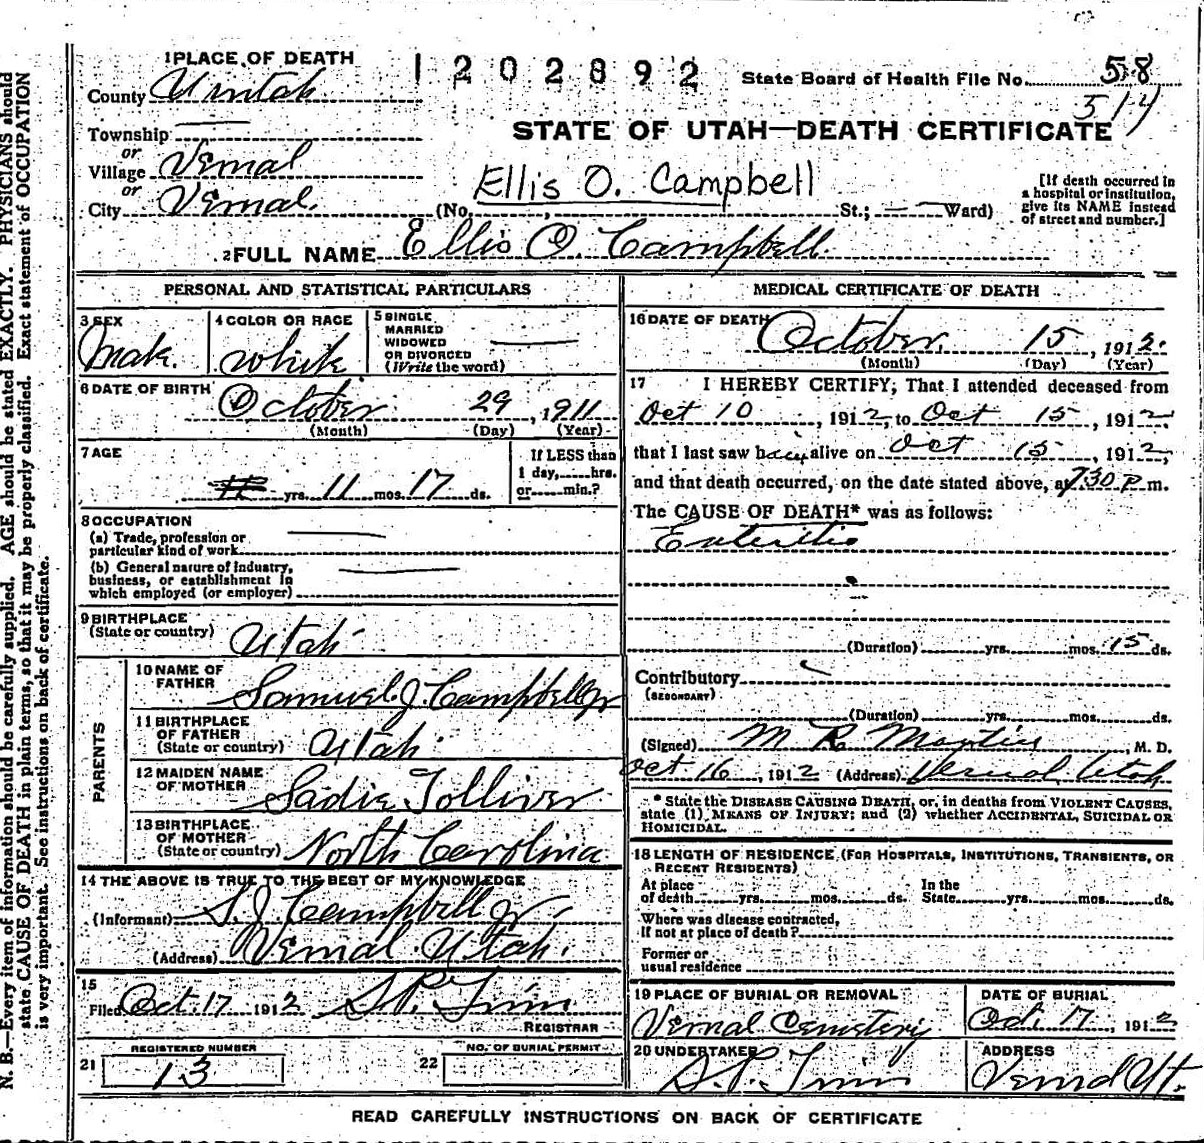 1 PLACE OF DEATH
1202892
State Board of Health File No. 58
514
County Uintah
STATE OF UTAH—DEATH CERTIFICATE
Township
or
Village Vernal
or
City Vernal.
Ellis O. Campbell
(No. , St.; Ward)
[If death occurred in a hospital or institution, give its NAME instead of street and number.]
2 FULL NAME Ellis O. Campbell.
PERSONAL AND STATISTICAL PARTICULARS
3 SEX
Male.
4 COLOR OR RACE
White
5 SINGLE
MARRIED
WIDOWED
OR DIVORCED
(Write the word)
6 DATE OF BIRTH October 29, 1911
(Month) (Day) (Year)
7 AGE
yrs. 11 mos. 17 ds.
If LESS than
1 day, hrs.
or min.?
8 OCCUPATION
(a) Trade, profession or
particular kind of work
(b) General nature of industry,
business, or establishment in
which employed (or employer)
9 BIRTHPLACE
(State or country) Utah
PARENTS
10 NAME OF
FATHER Samuel J. Campbell Jr
11 BIRTHPLACE
OF FATHER
(State or country) Utah
12 MAIDEN NAME
OF MOTHER Sadie Tolliver
13 BIRTHPLACE
OF MOTHER
(State or country) North Carolina
14 THE ABOVE IS TRUE TO THE BEST OF MY KNOWLEDGE
(Informant) S. J. Campbell Jr.
(Address) Vernal Utah.
15
Filed Oct. 17 1912
REGISTRAR
21 REGISTERED NUMBER
13
22 NO. OF BURIAL PERMIT
MEDICAL CERTIFICATE OF DEATH
16 DATE OF DEATH October 15, 1912.
(Month) (Day) (Year)
17 I HEREBY CERTIFY; That I attended deceased from
Oct 10, 1912, to Oct 15, 1912,
that I last saw him alive on Oct 15, 1912,
and that death occurred, on the date stated above, at 7.30 P.m.
The CAUSE OF DEATH* was as follows:
Enteritis
(Duration) yrs. mos. 15 ds.
Contributory
(SECONDARY)
(Duration) yrs. mos. ds.
(Signed) M R , M. D.
Oct 16, 1912 (Address) Vernal Utah
* State the DISEASE CAUSING DEATH, or, in deaths from VIOLENT CAUSES,
state (1) MEANS OF INJURY; and (2) whether ACCIDENTAL, SUICIDAL OR
HOMICIDAL.
18 LENGTH OF RESIDENCE (FOR HOSPITALS, INSTITUTIONS, TRANSIENTS, OR
RECENT RESIDENTS)
At place
of death yrs. mos. ds.
In the
State yrs. mos. ds.
Where was disease contracted,
If not at place of death?
Former or
usual residence
19 PLACE OF BURIAL OR REMOVAL
Vernal Cemetery
DATE OF BURIAL
Oct. 17, 1912
20 UNDERTAKER
ADDRESS
Vernal Ut.
READ CAREFULLY INSTRUCTIONS ON BACK OF CERTIFICATE
N. B.—Every item of information should be carefully supplied. AGE should be stated EXACTLY. PHYSICIANS should
state CAUSE OF DEATH in plain terms, so that it may be properly classified. Exact statement of OCCUPATION
is very important. See instructions on back of certificate.